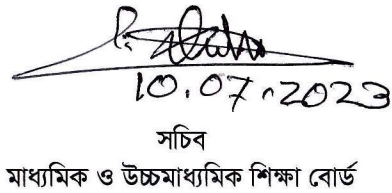 10.07.2023
সচিব
মাধ্যমিক ও উচ্চমাধ্যমিক শিক্ষা বোর্ড